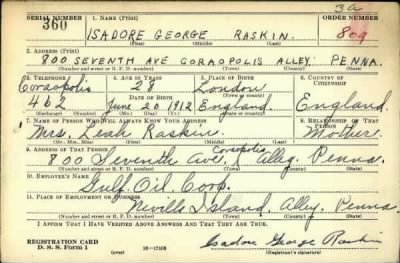 3a
SERIAL NUMBER 1. NAME (Print) ORDER NUMBER
360 ISADORE GEORGE RASKIN. 809
(First) (Middle) (Last)
2. ADDRESS (Print)
800 SEVENTH AVE CORAOPOLIS ALLEY. PENNA.
(Number and street or R. F. D. number) (Town) (County) (State)
3. TELEPHONE 4. AGE IN YEARS 5. PLACE OF BIRTH 6. COUNTRY OF CITIZENSHIP
Coraopolis 28 London
DATE OF BIRTH
462 June 20 1912 England. England.
(Exchange) (Number) (Mo.) (Day) (Yr.) (State or county)
7. NAME OF PERSON WHO WILL ALWAYS KNOW YOUR ADDRESS 8. RELATIONSHIP OF THAT PERSON
Mrs. Leah Raskin. Mother.
(Mr., Mrs., Miss) (First) (Middle) (Last)
9. ADDRESS OF THAT PERSON
800 Seventh Ave. Coraopolis Alleg. Penna.
(Number and street or R. F. D. number) (Town) (County) (State)
10. EMPLOYER'S NAME
Gulf Oil Corp.
11. PLACE OF EMPLOYMENT OR BUSINESS
Nevills Island. Alleg. Penna.
(Number and street or R. F. D. number) (Town) (County) (State)
I AFFIRM THAT I HAVE VERIFIED ABOVE ANSWERS AND THAT THEY ARE TRUE.
REGISTRATION CARD
D. S. S. Form 1 (over) 16—17105 Isadore George Raskin
(Registrant's signature)